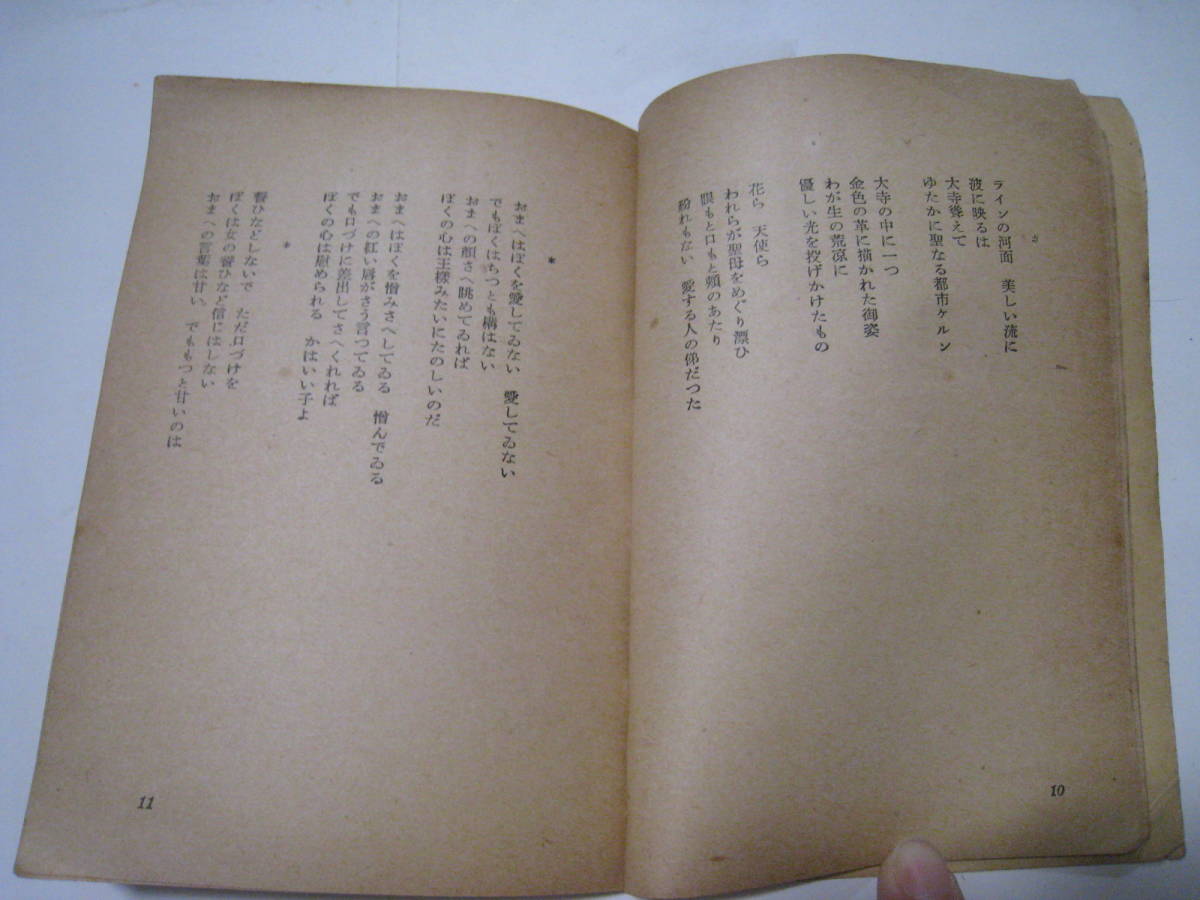 ラインの河面　美しい流に
波に映るは
大寺聳えて
ゆたかに聖なる都市ケルン
大寺の中に一つ
金色の革に描かれた御姿
わが生の荒凉に
優しい光を投げかけたもの
花ら　天使ら
われらが聖母をめぐり漂ひ
眼もと口もと頰のあたり
紛れもない　愛する人の俤だつた
10
*
おまへはぼくを愛してゐない　愛してゐない
でもぼくはちつとも構はない
おまへの顏さへ眺めてゐれば
ぼくの心は王樣みたいにたのしいのだ
おまへはぼくを憎みさへしてゐる　憎んでゐる
おまへの紅い唇がさう言つてゐる
でも口づけに差出してさへくれれば
ぼくの心は慰められる　かはいい子よ
*
誓ひなどしないで　ただ口づけを
ぼくは女の誓ひなど信じはしない
おまへの言葉は甘い、でももつと甘いのは
11